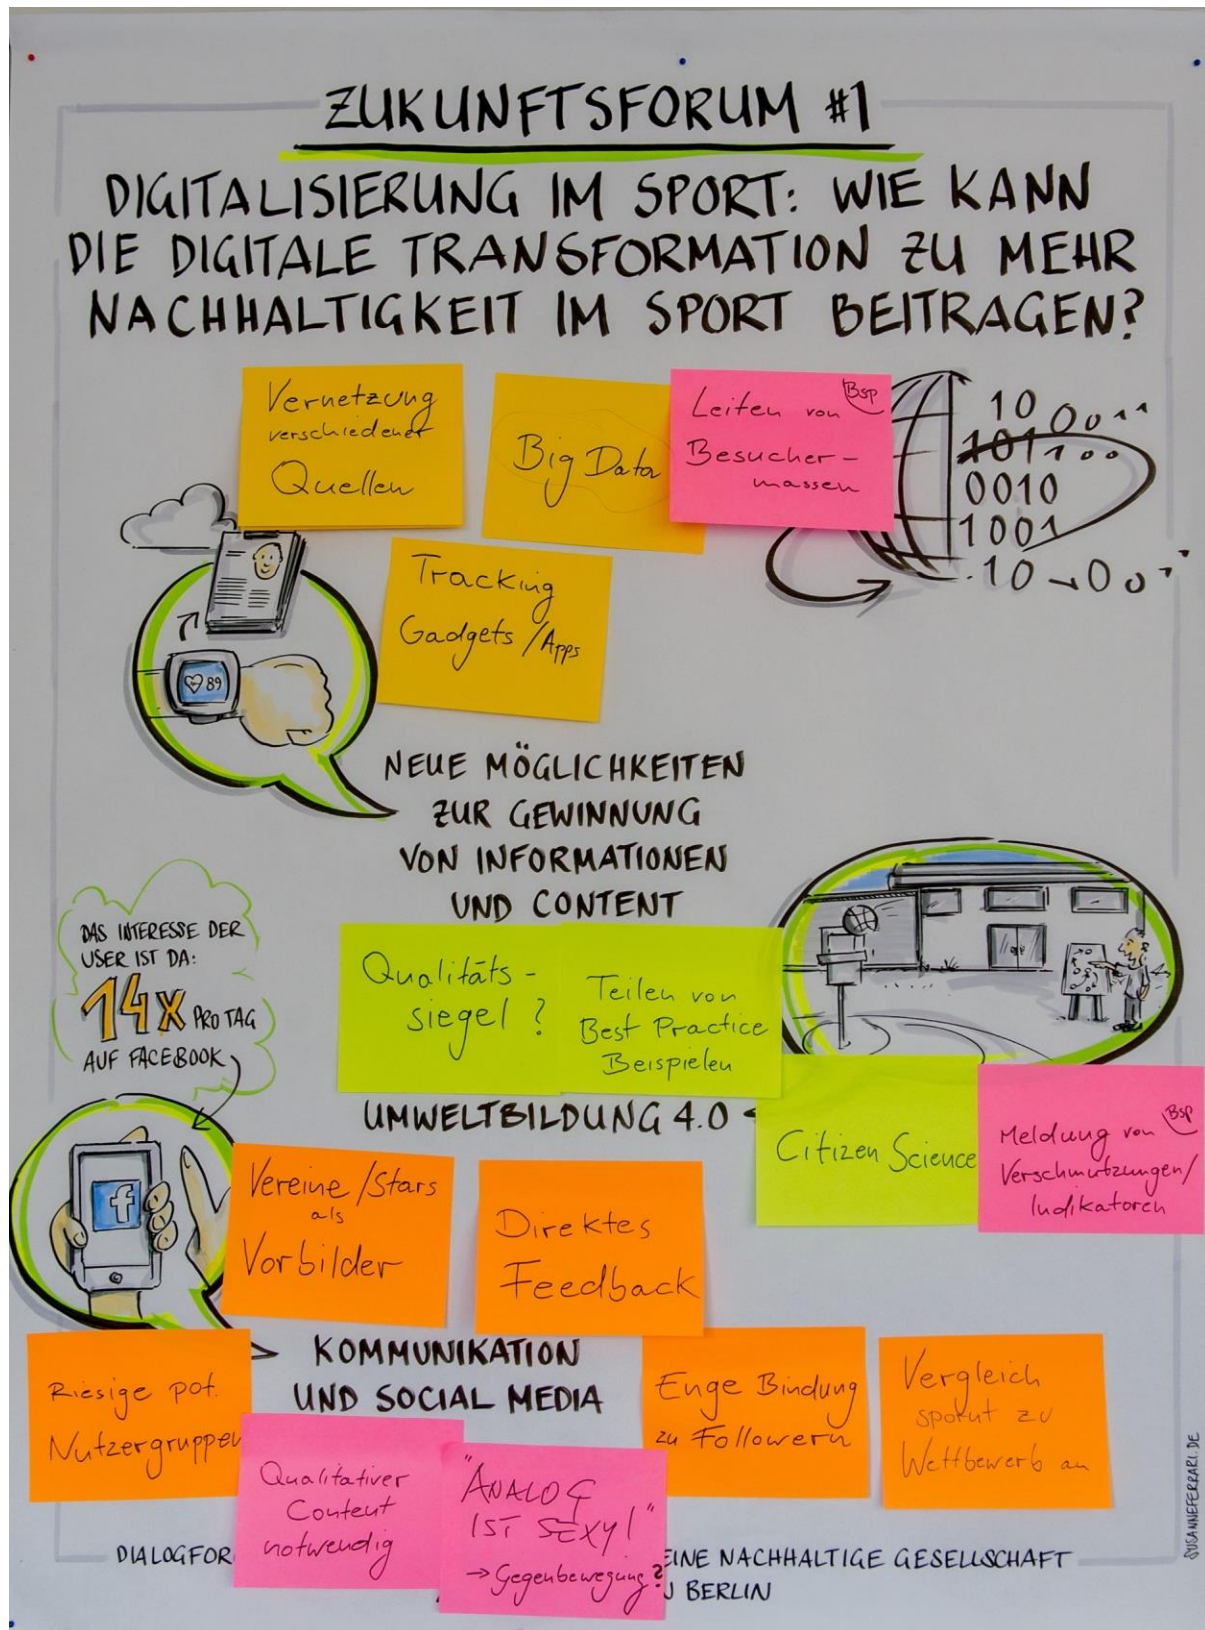 ZUKUNFTSFORUM #1
DIGITALISIERUNG IM SPORT: WIE KANN
DIE DIGITALE TRANSFORMATION ZU MEHR
NACHHALTIGKEIT IM SPORT BEITRAGEN?
Vernetzung
verschiedener
Quellen
Big Data
Bsp
Leiten von
Besucher-
massen
10 0011
1011100
0010
1001
Tracking
Gadgets/Apps
89
NEUE MÖGLICHKEITEN
ZUR GEWINNUNG
VON INFORMATIONEN
UND CONTENT
DAS INTERESSE DER
USER IST DA:
14X PRO TAG
AUF FACEBOOK
f
Qualitäts-
siegel?
Teilen von
Best Practice
Beispielen
UMWELTBILDUNG 4.0
Citizen Science
Bsp
Meldung von
Verschmutzungen/
Indikatoren
Vereine/Stars
als
Vorbilder
Direktes
Feedback
KOMMUNIKATION
UND SOCIAL MEDIA
Riesige pot.
Nutzergruppen
Enge Bindung
zu Followern
Vergleich
spornt zu
Wettbewerb an
Qualitativer
Content
notwendig
"ANALOG
IST SEXY!"
→ Gegenbewegung?
DIALOGFOR
EINE NACHHALTIGE GESELLSCHAFT
BERLIN
SUSANNEFERRARI.DE